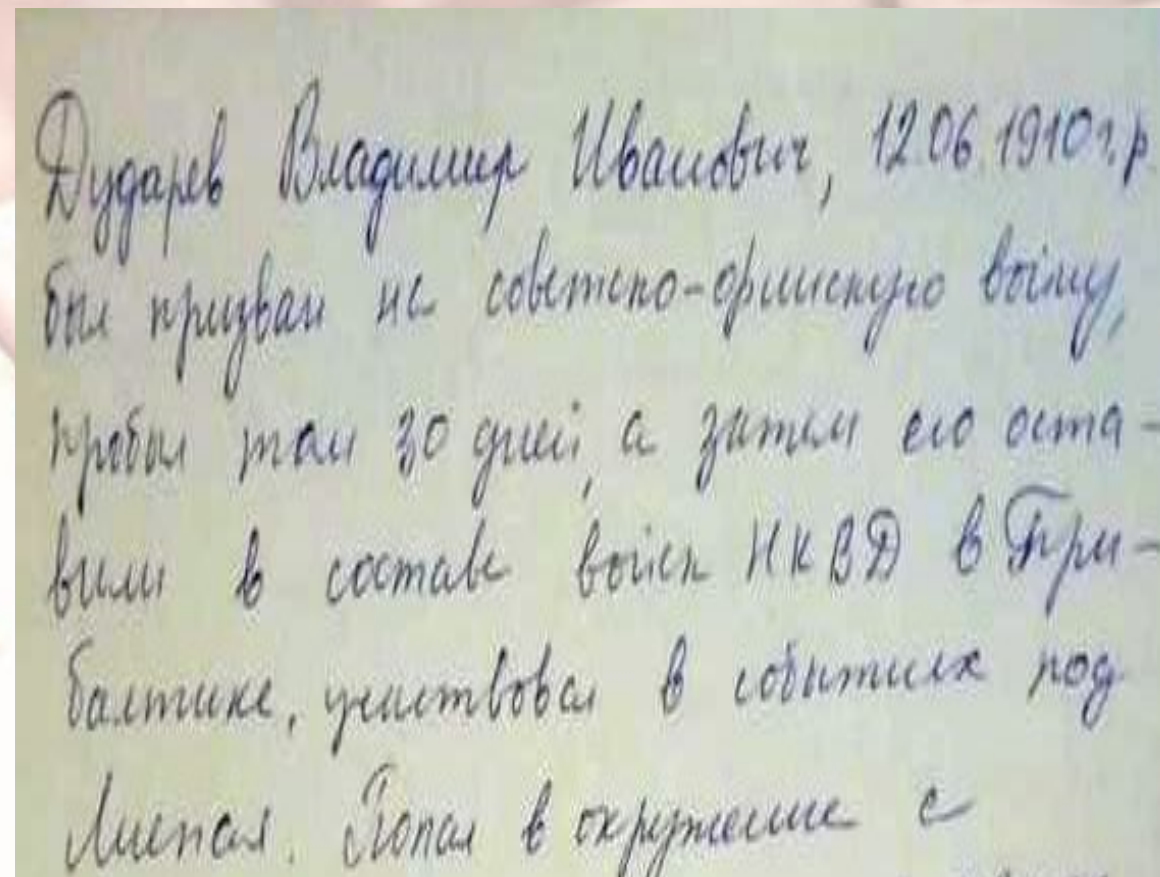 Дударев Владимир Иванович, 12.06.1910 г.р
был призван на советско-финскую войну,
пробыл там 30 дней, а затем его оста-
вили в составе войск НКВД в При-
балтике, участвовал в событиях под
Лиепая. Попал в окружение с